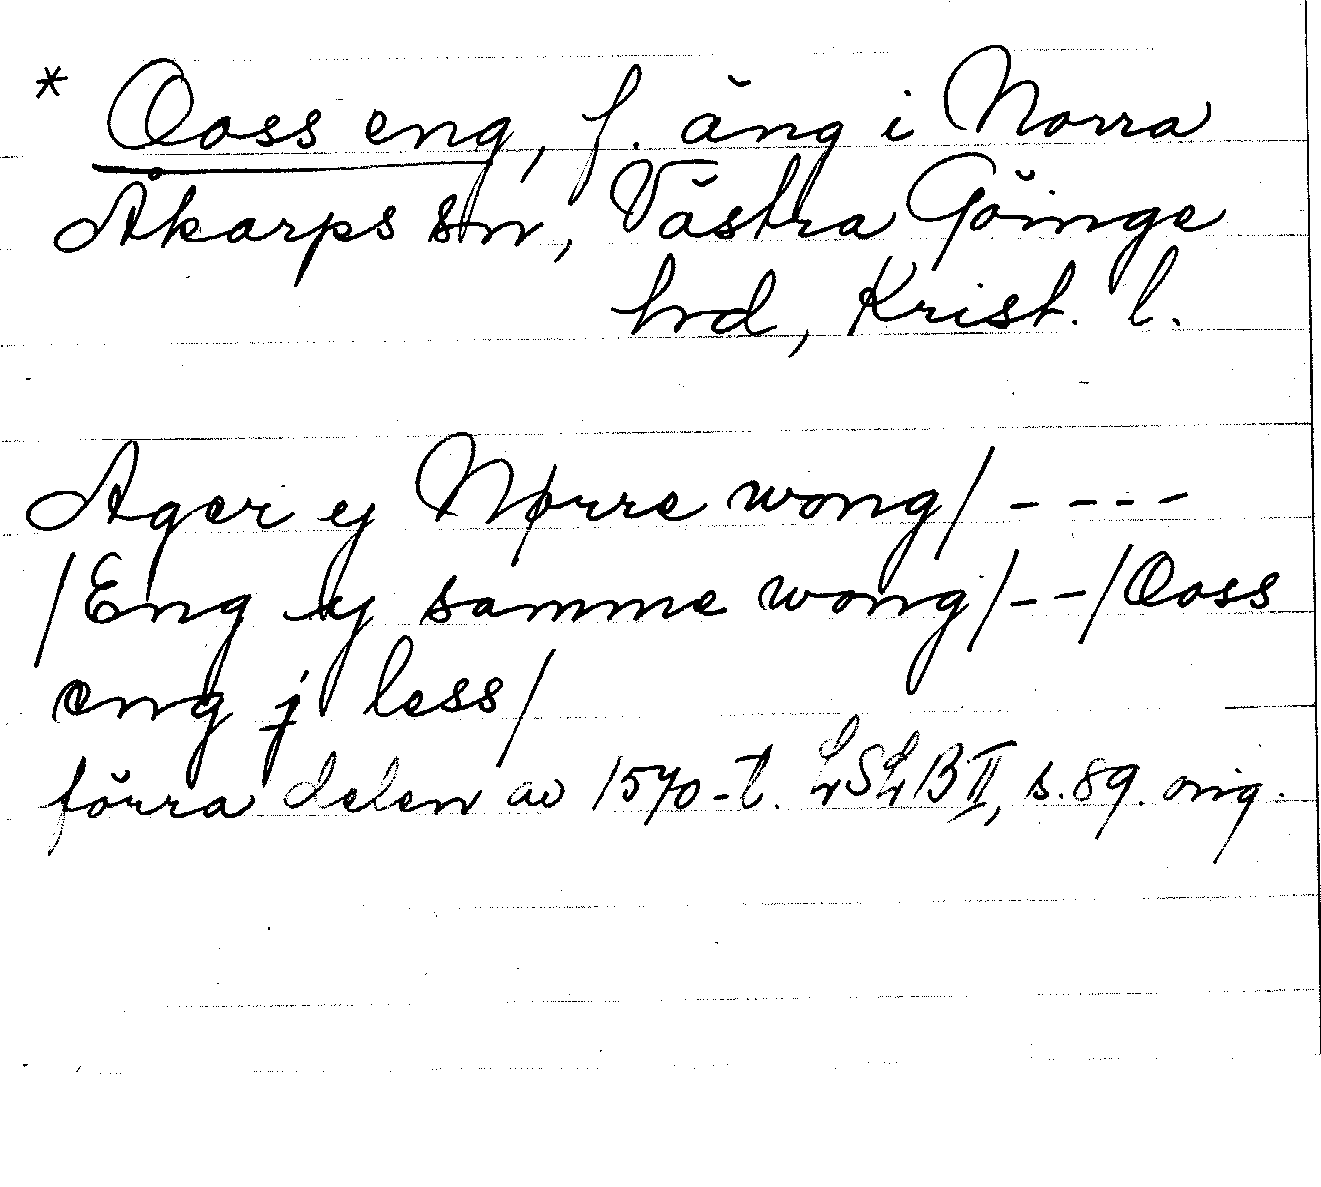 * Ooss eng, f. äng i Norra
Åkarps sn, Västra Göinge
hrd, Krist. l.
Ager ej Nørre wong/ - - - -
/Eng ej samme wong/ - - /Ooss
eng j less/
förra delen av 1570-t. LSLB II, s. 89. orig.